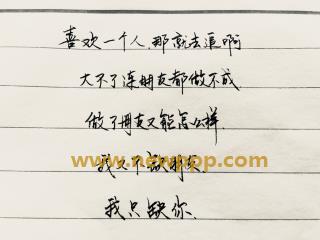 喜欢一个人,那就去追啊
大不了连朋友都做不成
做了朋友又能怎么样.
我又不缺朋友
www.newppp.com
我只缺你.